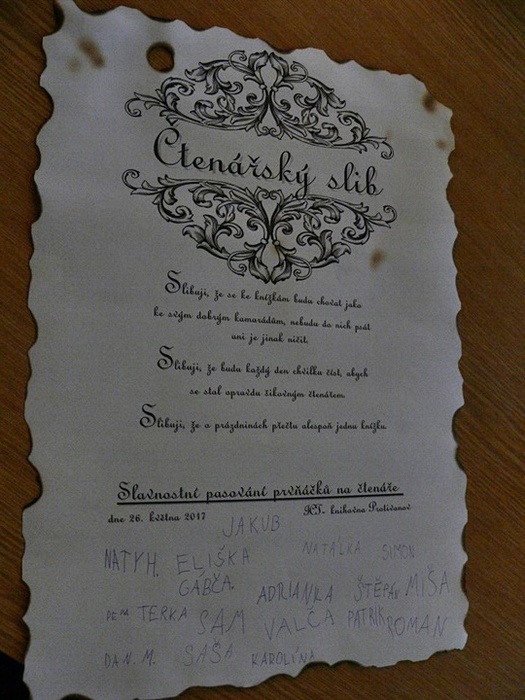 Čtenářský slib
Slibuji, že se ke knížkám budu chovat jako
ke svým dobrým kamarádům, nebudu do nich psát
ani je jinak ničit.
Slibuji, že budu každý den chvilku číst, abych
se stal opravdu šikovným čtenářem.
Slibuji, že o prázdninách přečtu alespoň jednu knížku
Slavnostní pasování prvňáčků na čtenáře
dne 26. května 2017 knihovna Protivanov
JAKUB
NATÁLKA SIMON
NATYH. ELIŠKA
GÁBČA. ADRIANKA ŠTĚPÁN MIŠA
TERKA SAM VALČA PATRIK ROMAN
DAN. M. SAŠA KAROLÍNA